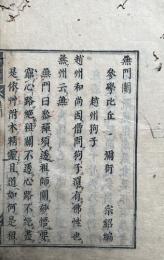 無門關
參學比丘 彌衍 宗紹編
趙州狗子
趙州和尚因僧問狗子還有佛性也
無州云無
無門曰參禪須透祖師關妙悟要
窮心路絶祖關不透心路不絶盡
是依草附木精靈且道如何是祖